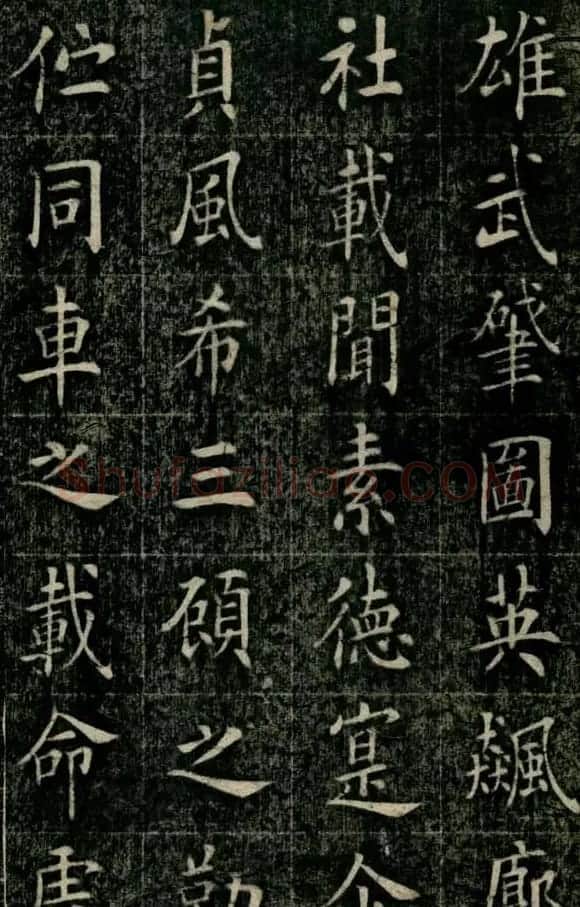 雄武肇圖英飙廓
社載聞素德寔企
貞風希三顧之勤
伫同車之載命
Shufaziliao.COM